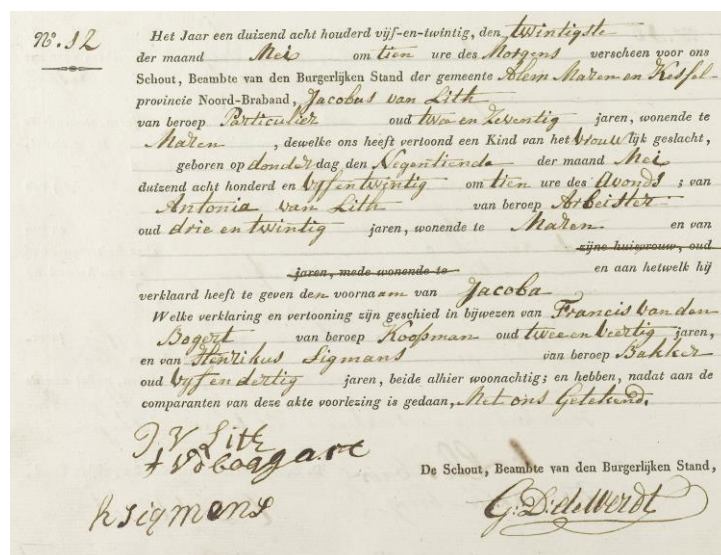 N°. 12
Het Jaar een duizend acht honderd vijf-en-twintig, den twintigste
der maand Mei om tien ure des Morgens verscheen voor ons
Schout, Beambte van den Burgerlijken Stand der gemeente Alem Maren en Kessel
provincie Noord-Braband, Jacobus van Lith
van beroep Particulier oud twee en Zeventig jaren, wonende te
Maren , dewelke ons heeft vertoond een Kind van het vrouwlijk geslacht,
geboren op donderdag den Negentiende der maand Mei
duizend acht honderd en vyf en twintig om tien ure des Avonds ; van
Antonia van Lith van beroep Arbeister
oud drie en twintig jaren, wonende te Maren en van
zijne huisvrouw, oud
jaren, mede wonende te en aan hetwelk hij
verklaard heeft te geven den voornaam van Jacoba
Welke verklaring en vertooning zijn geschied in bijwezen van Francis van den
Bogert van beroep Koopman oud twee en veertig jaren,
en van Henrikus Sigmans van beroep Bakker
oud vyf en dertig jaren, beide alhier woonachtig; en hebben, nadat aan de
comparanten van deze akte voorlezing is gedaan, Met ons Getekend.
J V Lith
De Schout, Beambte van den Burgerlijken Stand,
h sigmens
G: D: de Werdt